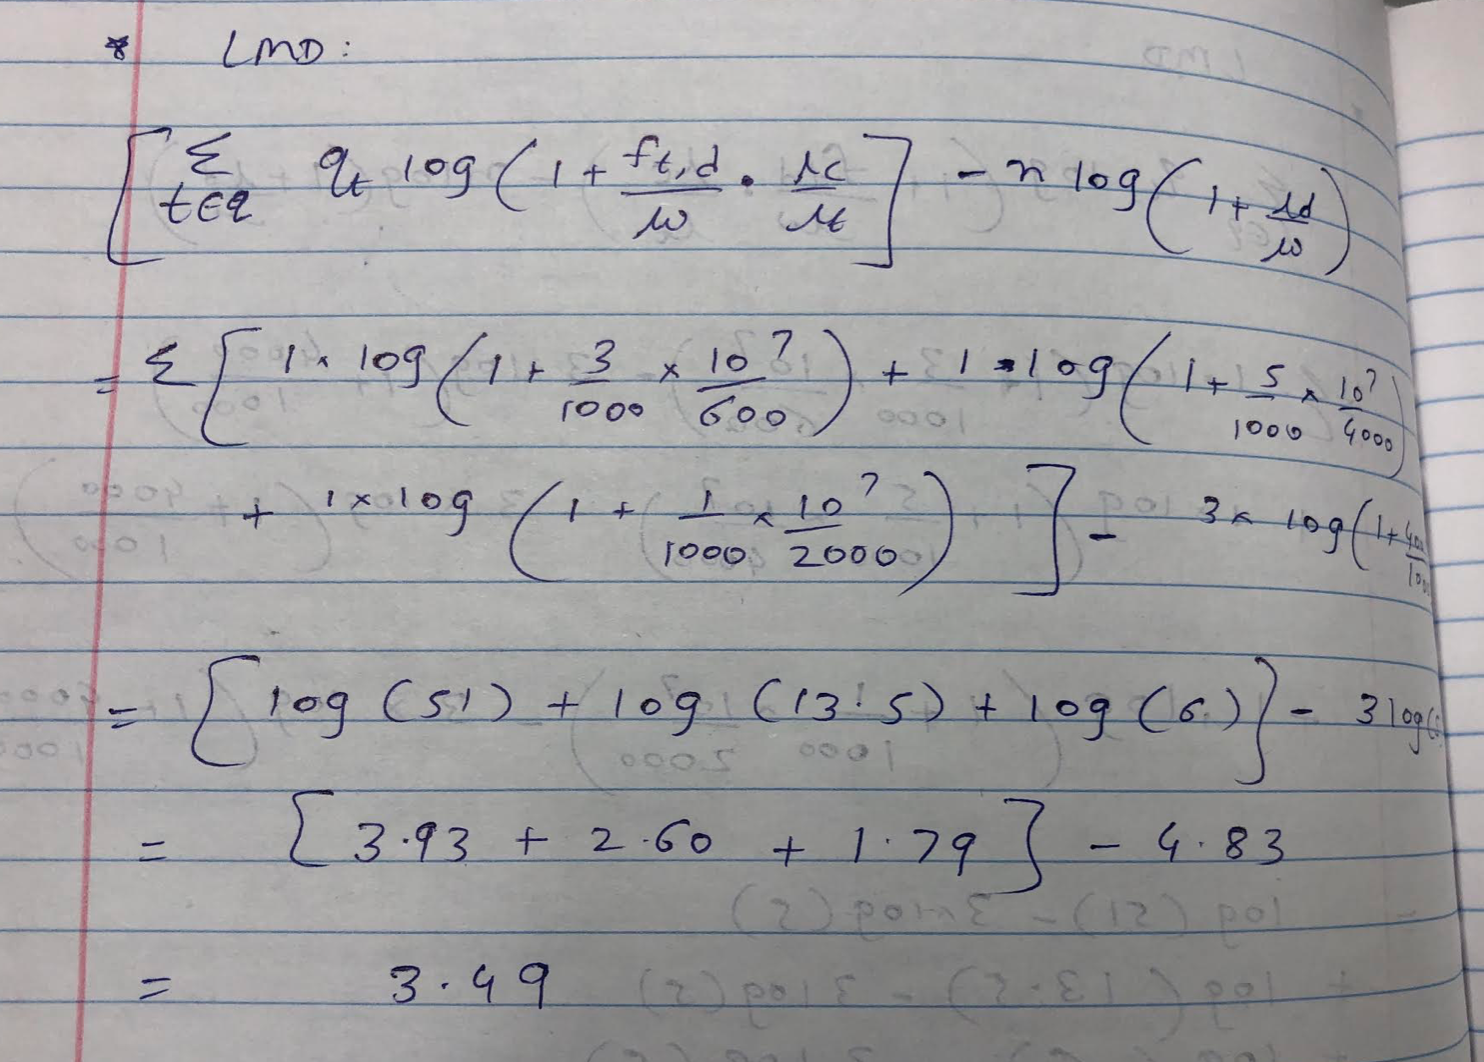 * LMD:
[ Σ t∈q qt log ( 1 + ft,d / μ · lc / lt ] - n log ( 1 + ld / μ )
= Σ [ 1 × log ( 1 + 3 / 1000 × 10^7 / 600 ) + 1 × log ( 1 + 5 / 1000 × 10^7 / 4000 )
+ 1 × log ( 1 + 1 / 1000 × 10^7 / 2000 ) ] - 3 × log ( 1 +
= [ log (51) + log (13.5) + log (6) ] - 3 log (
= [ 3.93 + 2.60 + 1.79 ] - 4.83
= 3.49